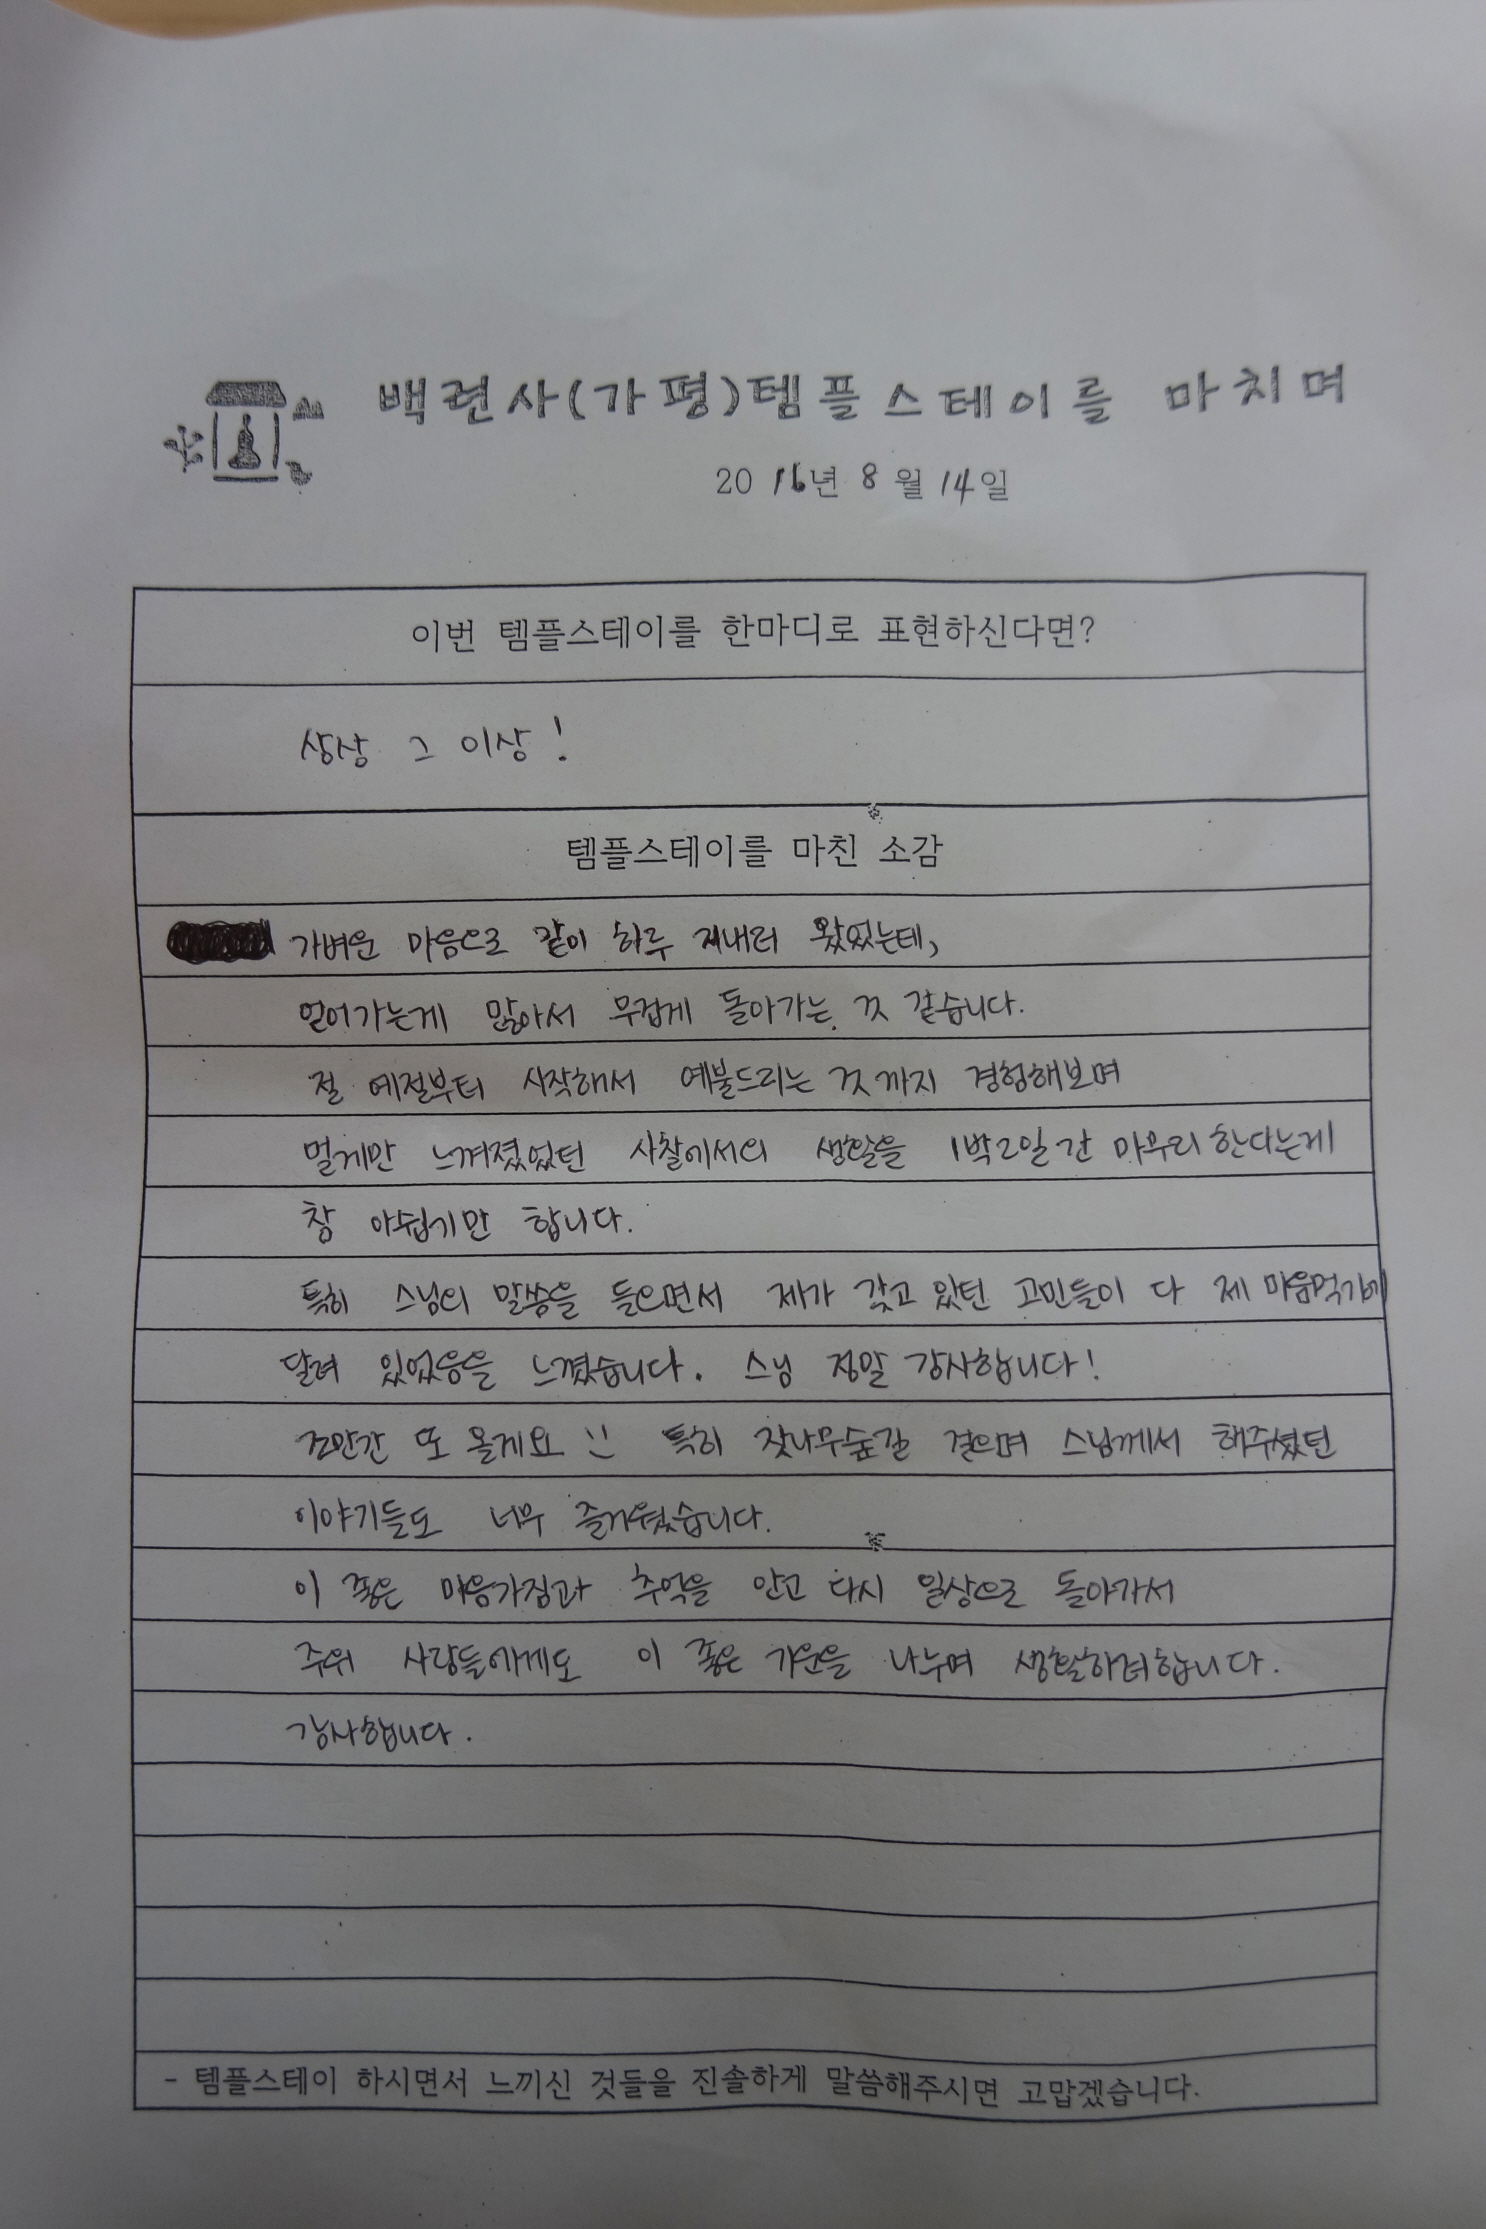 백련사(가평)템플스테이를 마치며
2016년 8월 14일
이번 템플스테이를 한마디로 표현하신다면?
상상 그 이상!
템플스테이를 마친 소감
가벼운 마음으로 같이 하루 지내러 왔었는데,
얻어가는게 많아서 무겁게 돌아가는 것 같습니다.
절 예절부터 시작해서 예불드리는 것까지 경험해보며
멀게만 느껴졌었던 사찰에서의 생활을 1박2일간 마무리한다는게
참 아쉽기만 합니다.
특히 스님의 말씀을 들으면서 제가 갖고 있던 고민들이 다 제 마음먹기에
달려 있었음을 느꼈습니다. 스님 정말 감사합니다!
조만간 또 올게요 :) 특히 잣나무숲길 걸으며 스님께서 해주셨던
이야기들도 너무 즐거웠습니다.
이 좋은 마음가짐과 추억을 안고 다시 일상으로 돌아가서
주위 사람들에게도 이 좋은 기운을 나누며 생활하려합니다.
감사합니다.
- 템플스테이 하시면서 느끼신 것들을 진솔하게 말씀해주시면 고맙겠습니다.